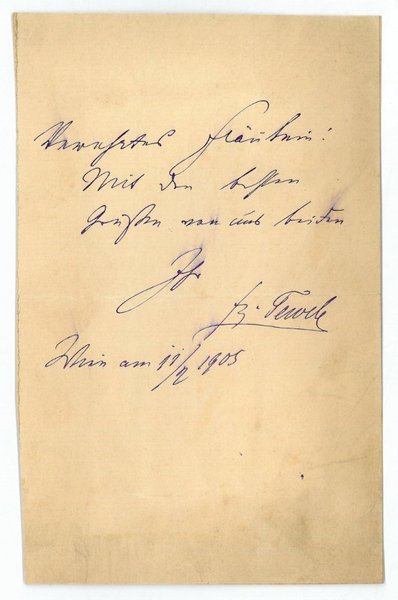 Verehrtes Fräulein!
Mit den besten
Grüßen von uns beiden
Ihr
Fz. Tewele
Wien am 11/2 1905